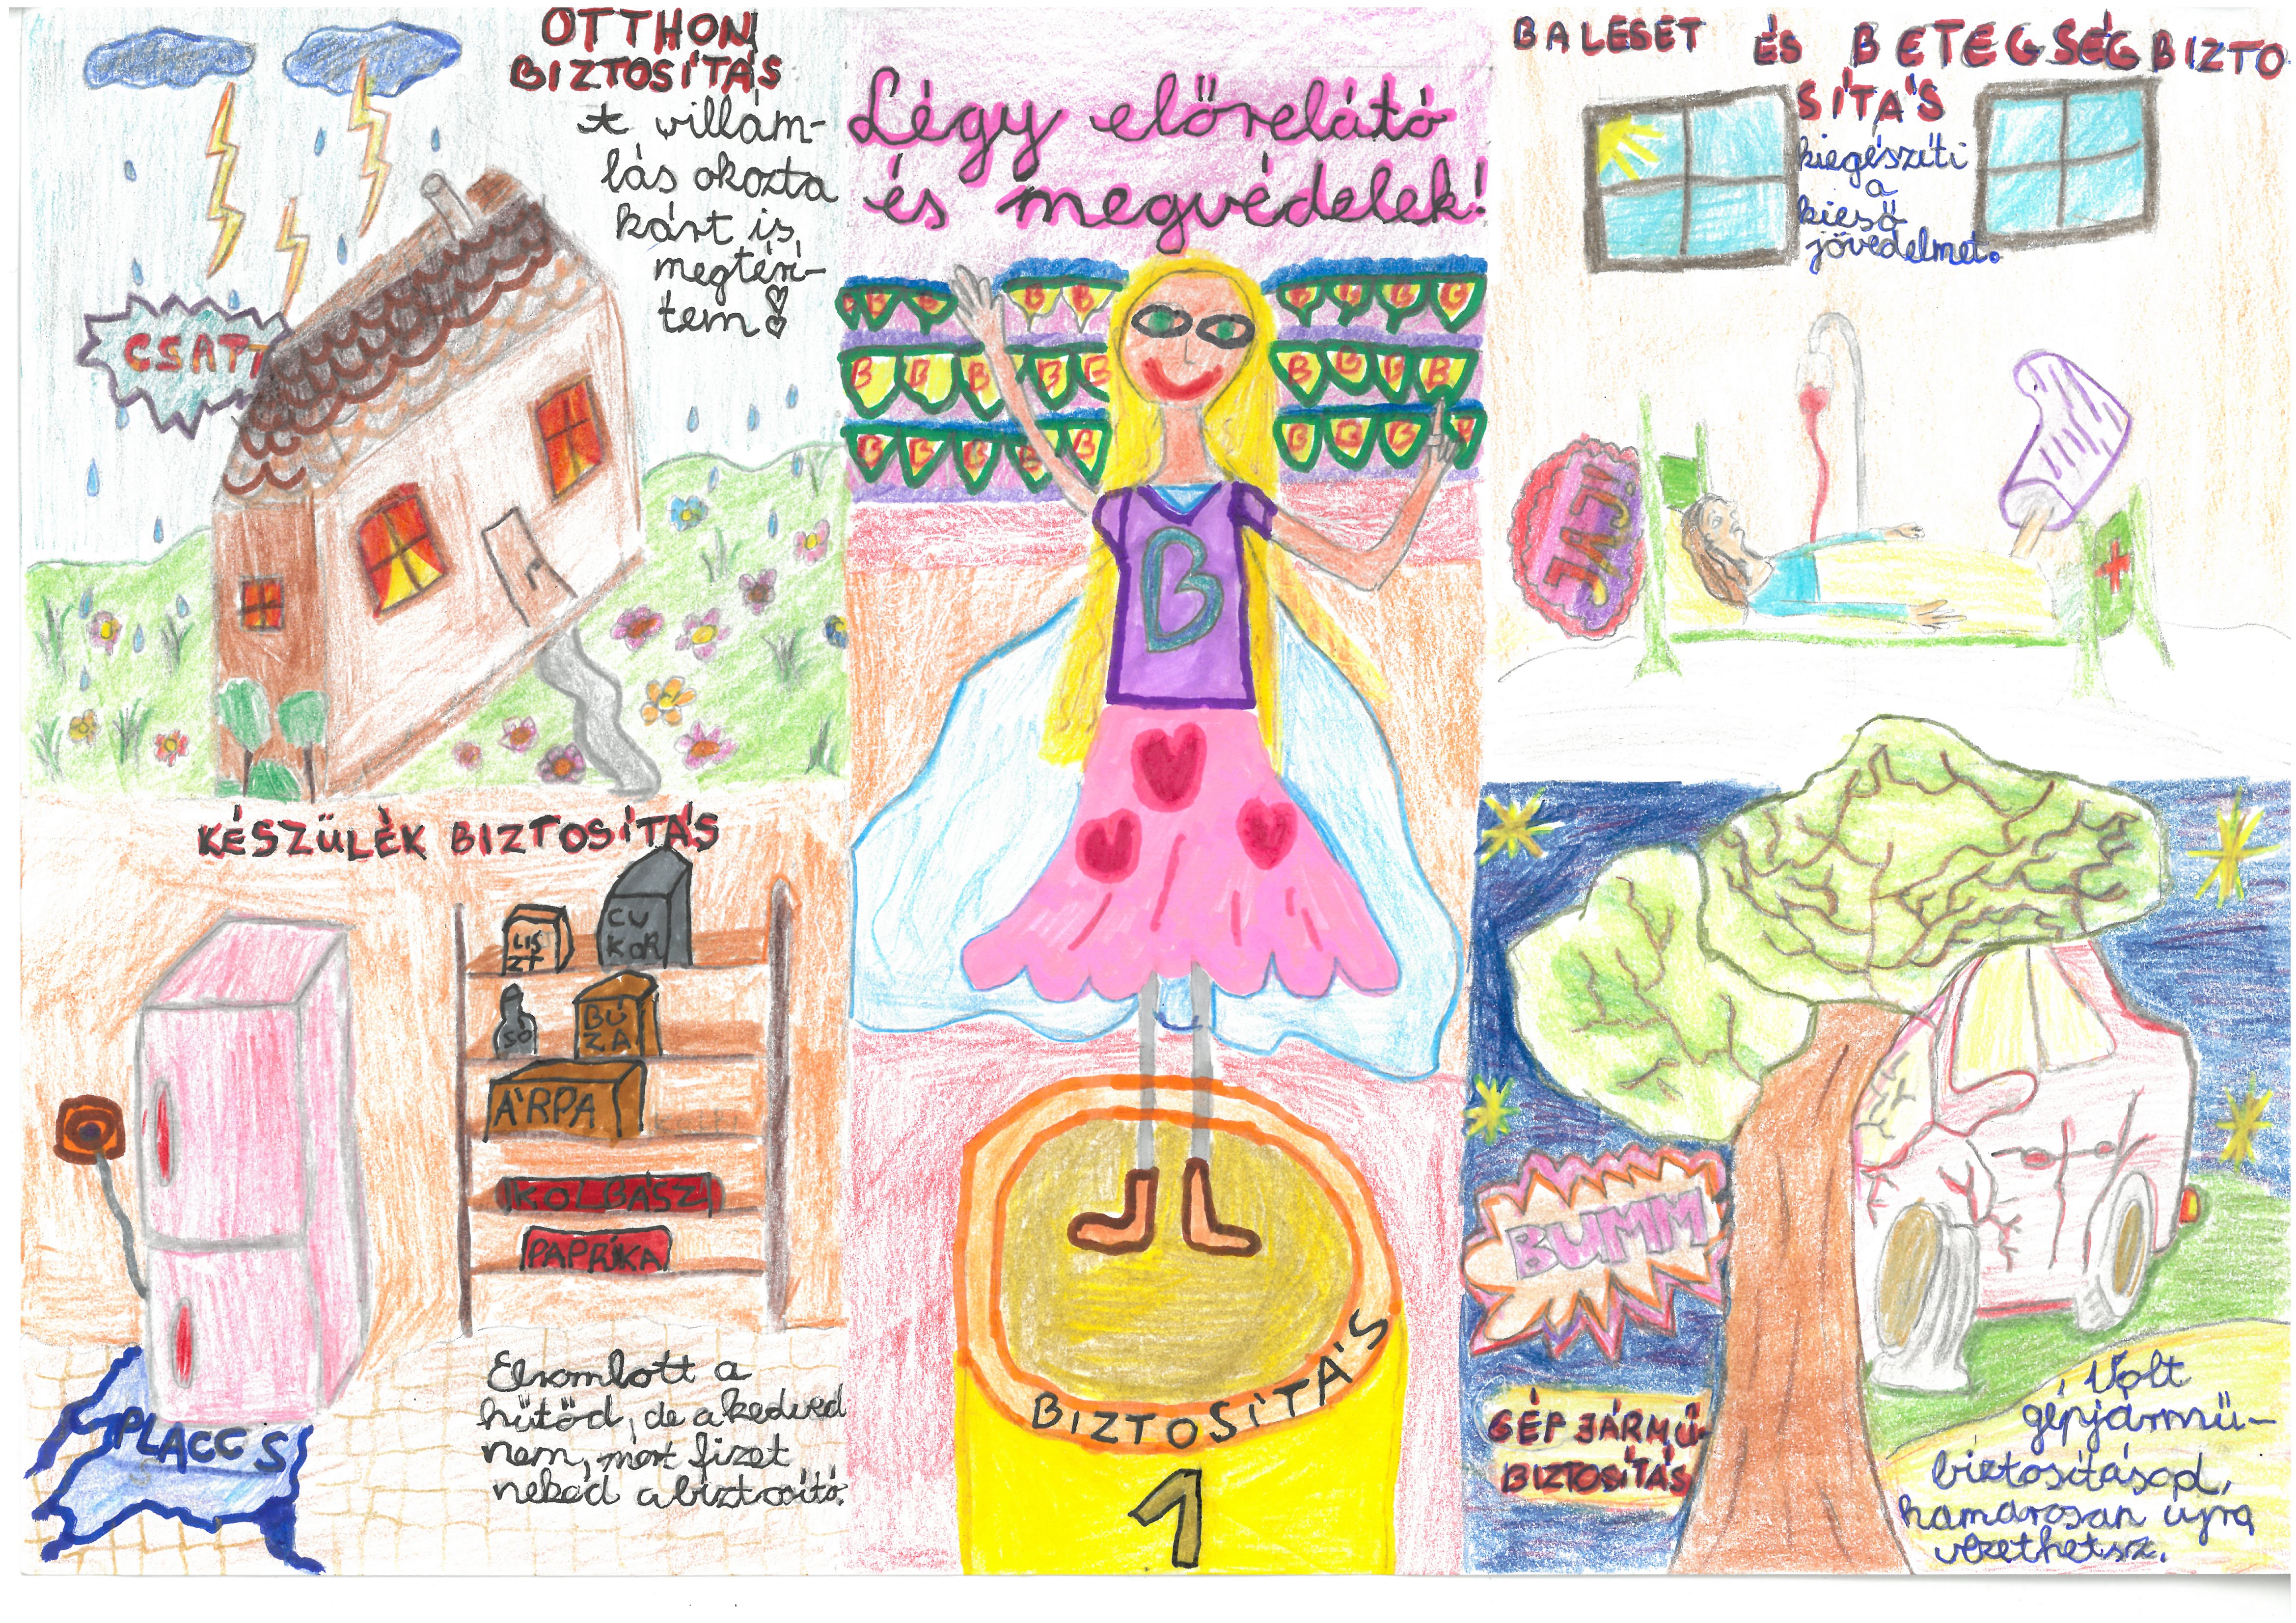 OTTHON
BIZTOSÍTÁS
A villám-
lás okozta
kárt is
megtérí-
tem!
CSATT
Légy előrelátó
és megvédelek!
B B B B B
B B B B
B B B B B
B B B B
B B B B B
B B B B
B
BIZTOSÍTÁS
1
BALESET ÉS BETEGSÉGBIZTO
SÍTÁS
kiegészíti
a
kieső
jövedelmet.
JAJ!
KÉSZÜLÉK BIZTOSÍTÁS
LIS
ZT
CU
KOR
SÓ
BÚ
ZA
ÁRPA
KOLBÁSZ
PAPRIKA
PLACCS
Elromlott a
hűtőd, de a kedved
nem, mert fizet
neked a biztosító.
BUMM
GÉPJÁRMŰ-
BIZTOSÍTÁS
Volt
gépjármű-
biztosításod,
hamarosan újra
vezethetsz.